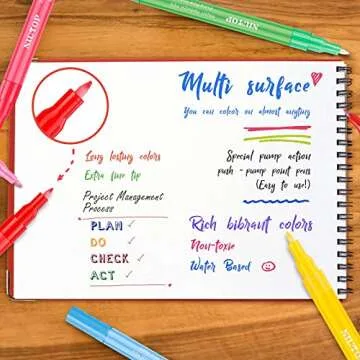 NILTOP
NILTOP
Multi surface
You can colour on almost anyting
Long lasting colors
Extra fine tip
Project Management
Process
PLAN ✓
DO ✓
CHECK ✓
ACT ✓
Special pump action
push - pump paint pens
(Easy to use!)
Rich bibrant colors
Non-toxic
Water Based
NILTOP
NILTOP